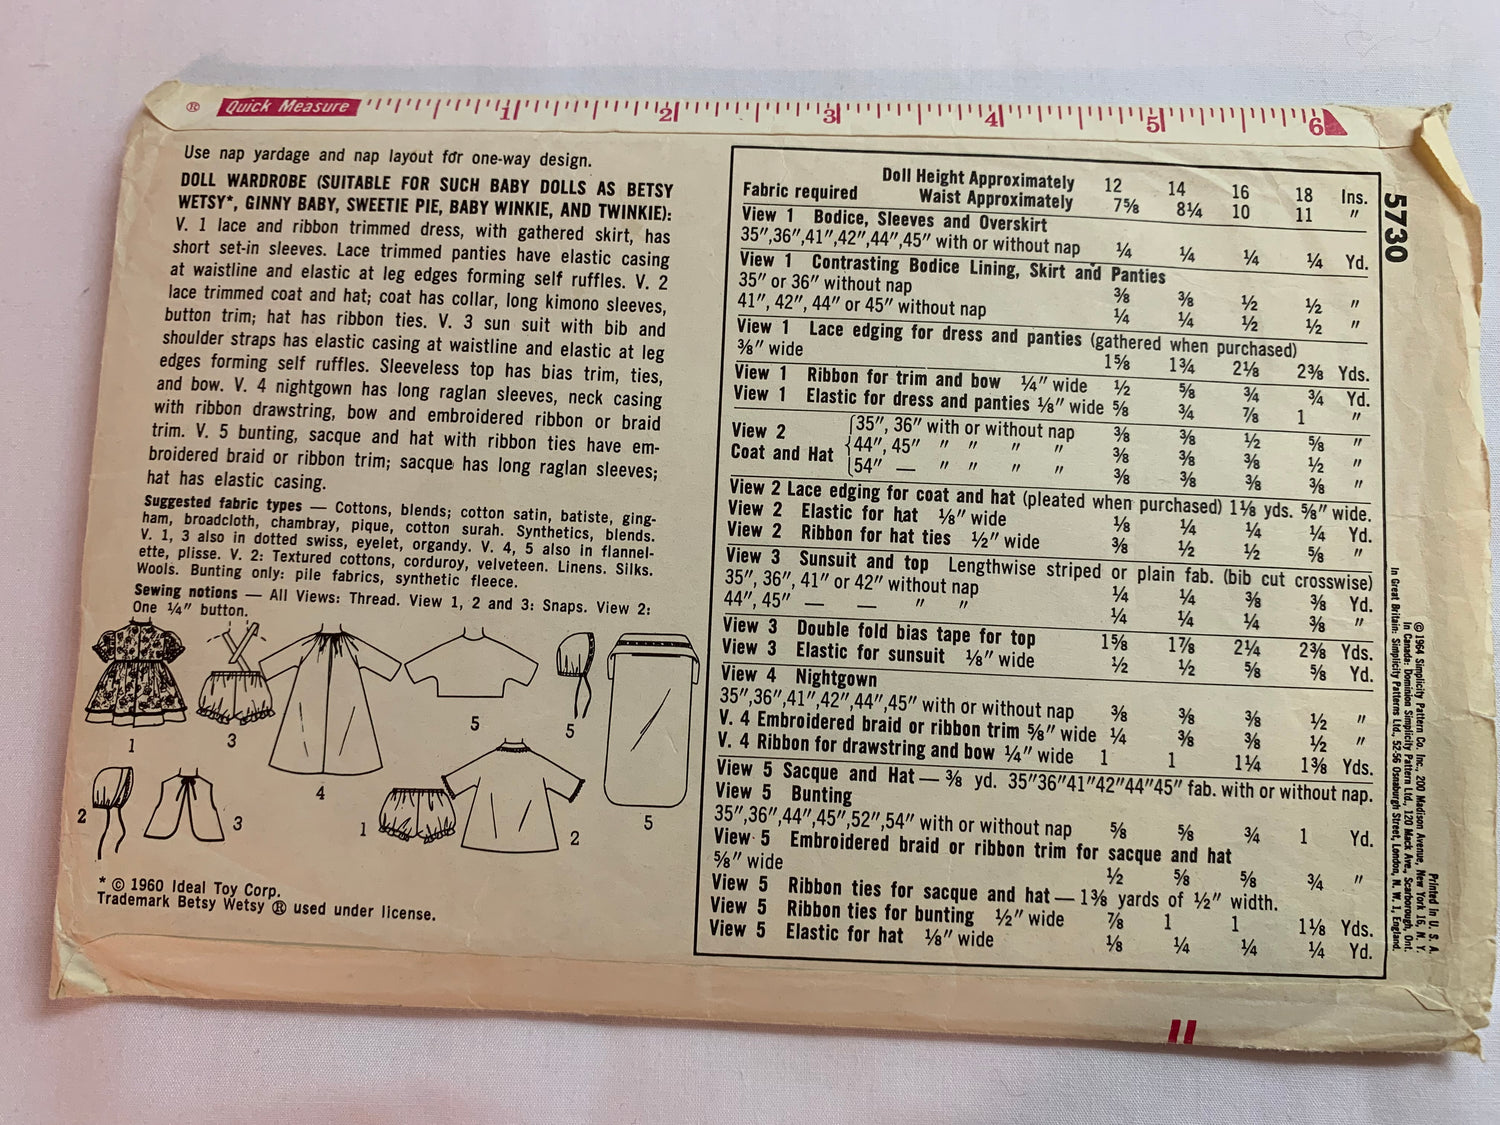 ® Quick Measure 1 2 3 4 5 6
Use nap yardage and nap layout for one-way design.
DOLL WARDROBE (SUITABLE FOR SUCH BABY DOLLS AS BETSY
WETSY*, GINNY BABY, SWEETIE PIE, BABY WINKIE, AND TWINKIE):
V. 1 lace and ribbon trimmed dress, with gathered skirt, has
short set-in sleeves. Lace trimmed panties have elastic casing
at waistline and elastic at leg edges forming self ruffles. V. 2
lace trimmed coat and hat; coat has collar, long kimono sleeves,
button trim; hat has ribbon ties. V. 3 sun suit with bib and
shoulder straps has elastic casing at waistline and elastic at leg
edges forming self ruffles. Sleeveless top has bias trim, ties,
and bow. V. 4 nightgown has long raglan sleeves, neck casing
with ribbon drawstring, bow and embroidered ribbon or braid
trim. V. 5 bunting, sacque and hat with ribbon ties have em-
broidered braid or ribbon trim; sacque has long raglan sleeves;
hat has elastic casing.
Suggested fabric types — Cottons, blends; cotton satin, batiste, ging-
ham, broadcloth, chambray, pique, cotton surah. Synthetics, blends.
V. 1, 3 also in dotted swiss, eyelet, organdy. V. 4, 5 also in flannel-
ette, plisse. V. 2: Textured cottons, corduroy, velveteen. Linens. Silks.
Wools. Bunting only: pile fabrics, synthetic fleece.
Sewing notions — All Views: Thread. View 1, 2 and 3: Snaps. View 2:
One ¼" button.
1
3
4
5
5
5
2
3
1
2
* © 1960 Ideal Toy Corp.
Trademark Betsy Wetsy ® used under license.
Doll Height Approximately 12 14 16 18 Ins.
Fabric required Waist Approximately 7⅝ 8¼ 10 11 "
View 1 Bodice, Sleeves and Overskirt
35",36",41",42",44",45" with or without nap ¼ ¼ ¼ ¼ Yd.
View 1 Contrasting Bodice Lining, Skirt and Panties
35" or 36" without nap ⅜ ⅜ ½ ½ "
41", 42", 44" or 45" without nap ¼ ¼ ½ ½ "
View 1 Lace edging for dress and panties (gathered when purchased)
⅜" wide 1⅝ 1¾ 2⅛ 2⅜ Yds.
View 1 Ribbon for trim and bow ¼" wide ½ ⅝ ¾ ¾ Yd.
View 1 Elastic for dress and panties ⅛" wide ⅝ ¾ ⅞ 1 "
View 2 Coat and Hat
35", 36" with or without nap ⅜ ⅜ ½ ⅝ "
44", 45" " " " " ⅜ ⅜ ⅜ ½ "
54" — " " " " ⅜ ⅜ ⅜ ⅜ "
View 2 Lace edging for coat and hat (pleated when purchased) 1⅛ yds. ⅝" wide.
View 2 Elastic for hat ⅛" wide ⅛ ¼ ¼ ¼ Yd.
View 2 Ribbon for hat ties ½" wide ⅜ ½ ½ ⅝ "
View 3 Sunsuit and top Lengthwise striped or plain fab. (bib cut crosswise)
35", 36", 41" or 42" without nap ¼ ¼ ⅜ ⅜ Yd.
44", 45" — — " " ¼ ¼ ¼ ⅜ "
View 3 Double fold bias tape for top 1⅝ 1⅞ 2¼ 2⅜ Yds.
View 3 Elastic for sunsuit ⅛" wide ½ ½ ⅝ ⅝ Yd.
View 4 Nightgown
35",36",41",42",44",45" with or without nap ⅜ ⅜ ⅜ ½ "
V. 4 Embroidered braid or ribbon trim ⅝" wide ¼ ⅜ ⅜ ½ "
V. 4 Ribbon for drawstring and bow ¼" wide 1 1 1¼ 1⅜ Yds.
View 5 Sacque and Hat — ⅜ yd. 35"36"41"42"44"45" fab. with or without nap.
View 5 Bunting
35",36",44",45",52",54" with or without nap ⅝ ⅝ ¾ 1 Yd.
View 5 Embroidered braid or ribbon trim for sacque and hat
⅝" wide ½ ⅝ ⅝ ¾ "
View 5 Ribbon ties for sacque and hat — 1⅜ yards of ½" width.
View 5 Ribbon ties for bunting ½" wide ⅞ 1 1 1⅛ Yds.
View 5 Elastic for hat ⅛" wide ⅛ ¼ ¼ ¼ Yd.
5730
Printed in U. S. A.
© 1964 Simplicity Pattern Co. Inc., 200 Madison Avenue, New York 16, N. Y.
In Canada: Dominion Simplicity Pattern Ltd., 120 Mack Ave., Scarborough, Ont.
In Great Britain: Simplicity Patterns Ltd., 52-56 Osnaburgh Street, London, N. W. 1, England.